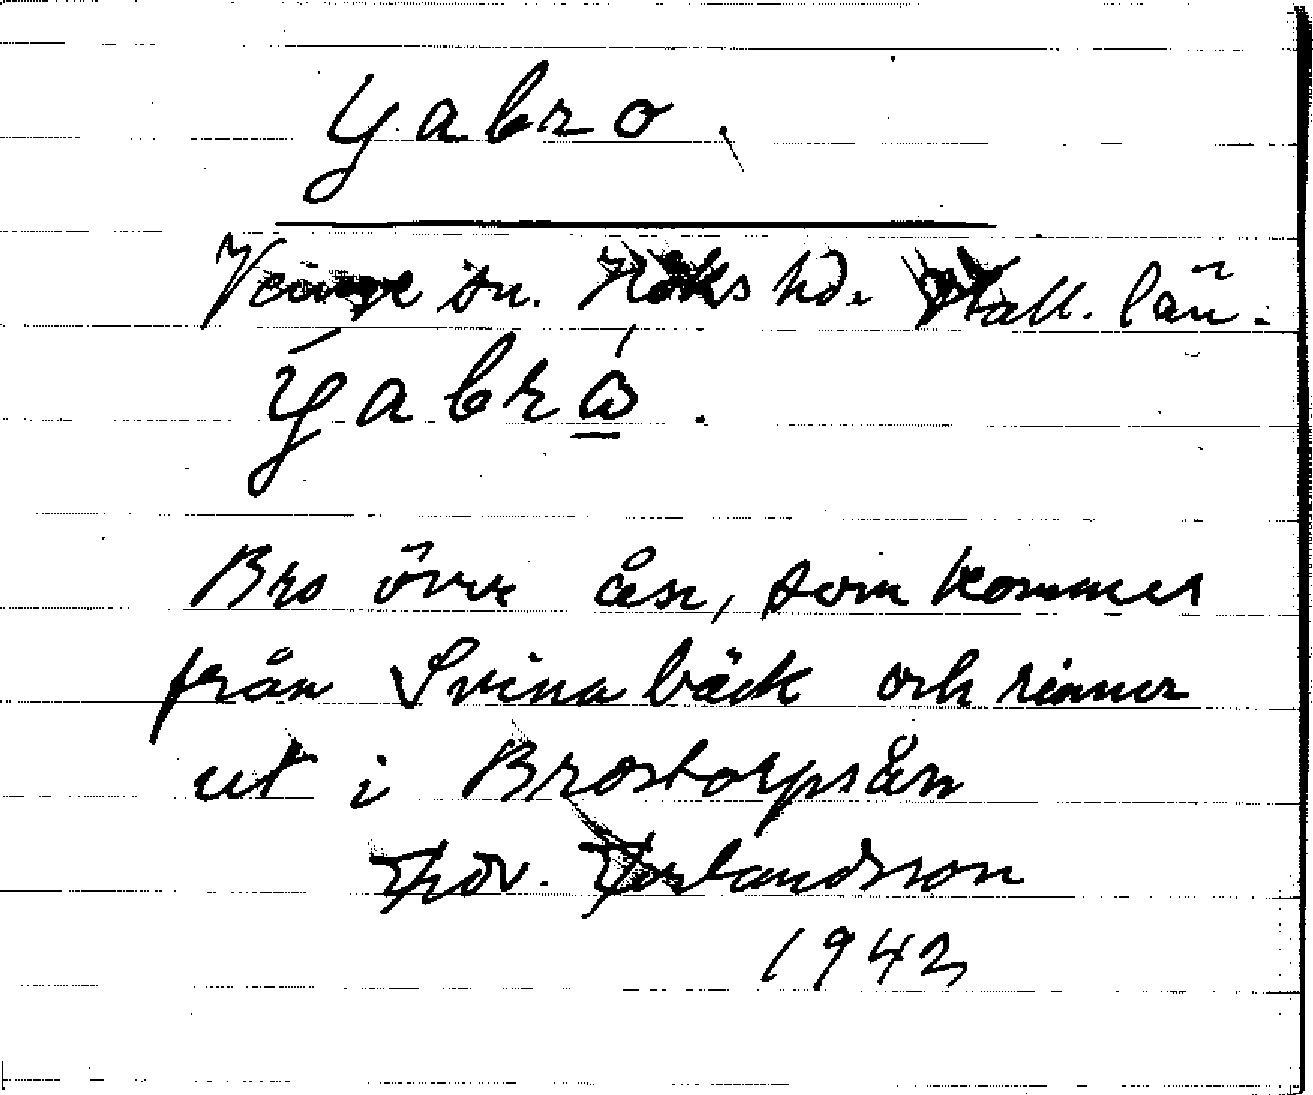 Yabro.
Veinge sn. Höks hd. Hall. län.
Yabrå.
Bro över ån, som kommer
från Svinabäck och rinner
ut i Brostorpsån
1942